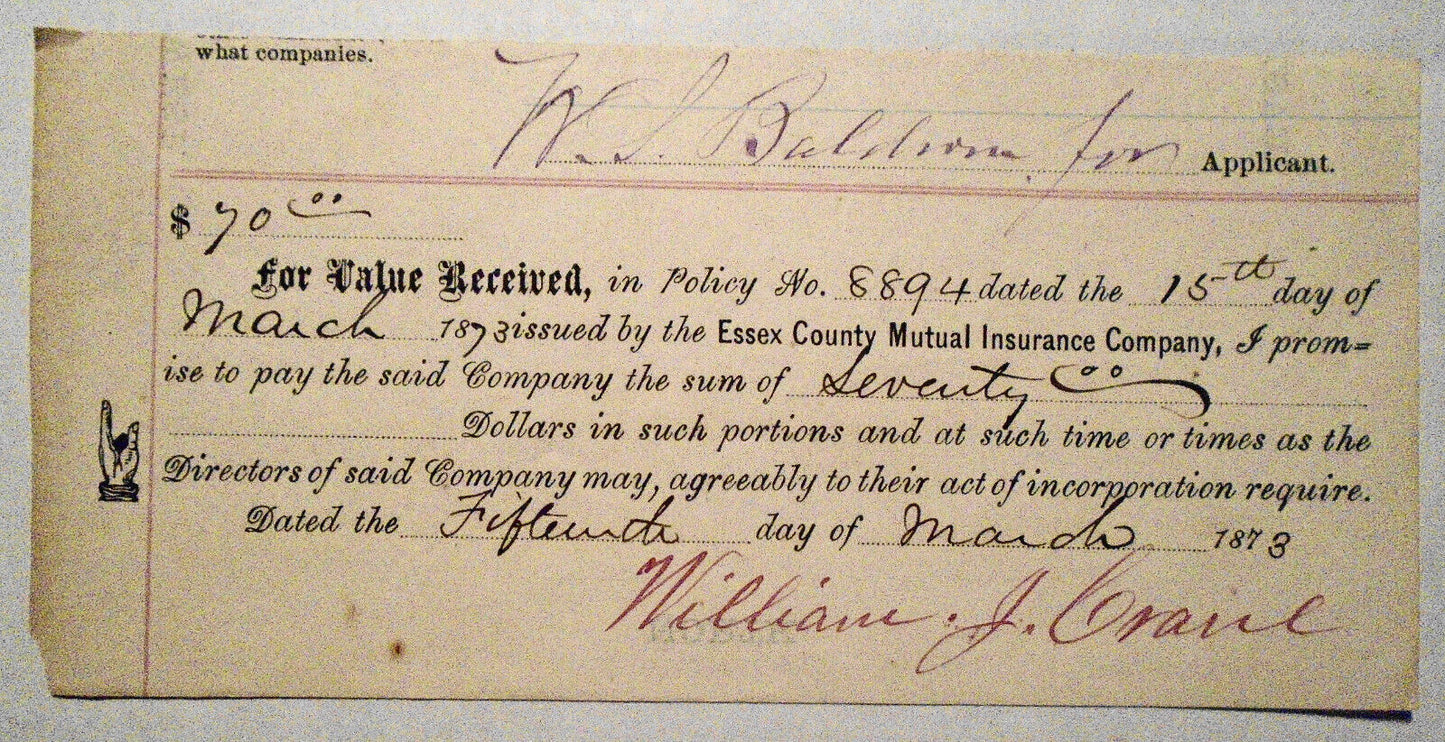 what companies.
W. S. Baldwin for Applicant.
$ 70 00
For Value Received, in Policy No. 8894 dated the 15th day of
March 1873 issued by the Essex County Mutual Insurance Company, I prom=
ise to pay the said Company the sum of Seventy 00
Dollars in such portions and at such time or times as the
Directors of said Company may, agreeably to their act of incorporation require.
Dated the Fifteenth day of March 1873
William. J. Crane